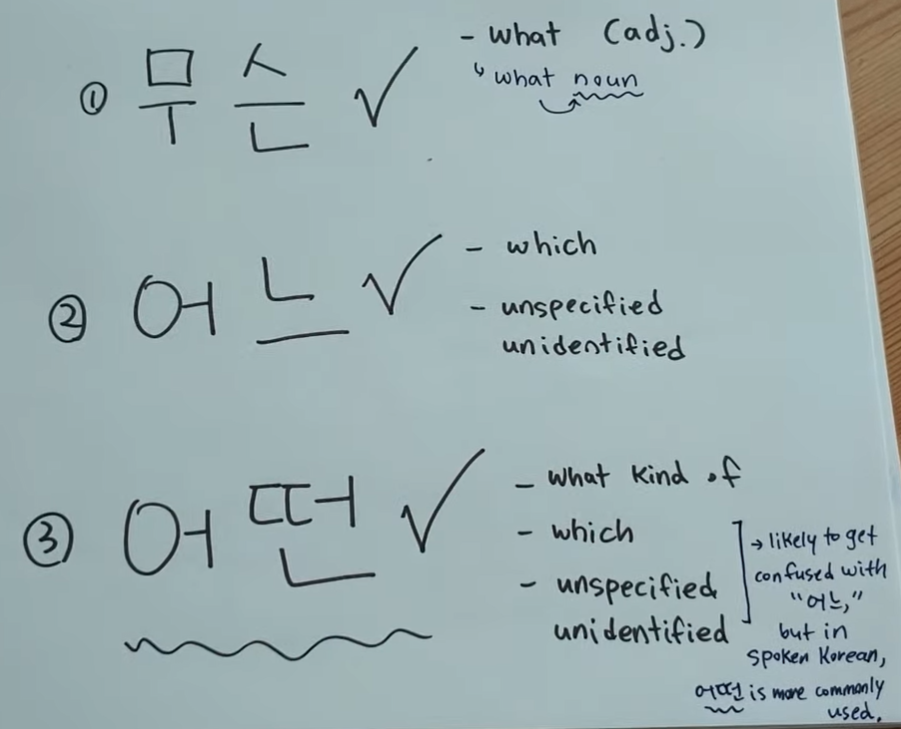 ① 무슨 ✓ - what (adj.)
↳ what noun
② 어느 ✓ - which
- unspecified
unidentified
③ 어떤 ✓ - what kind of
- which
- unspecified
unidentified
→ likely to get
confused with
"어느,"
but in
spoken Korean,
어떤 is more commonly
used.